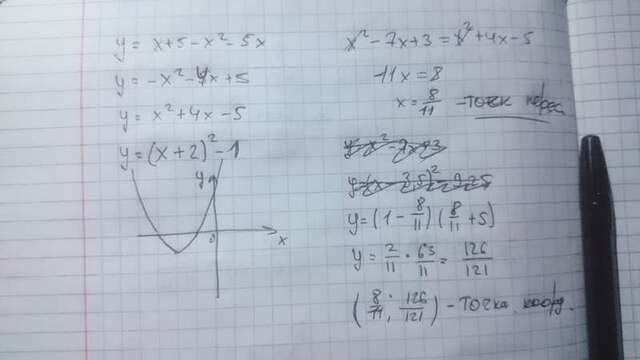 y = x+5-x²-5x
y = -x²-4x+5
y = x²+4x-5
y = (x+2)²-1
y
0
x
x²-7x+3 = x²+4x-5
-11x = 8
x = 8/11 - точк перес
y = x²-7x+3
y = (1-8/11)(8/11+5)
y = 2/11 · 63/11 = 126/121
(8/11; 126/121) - точка коорд.